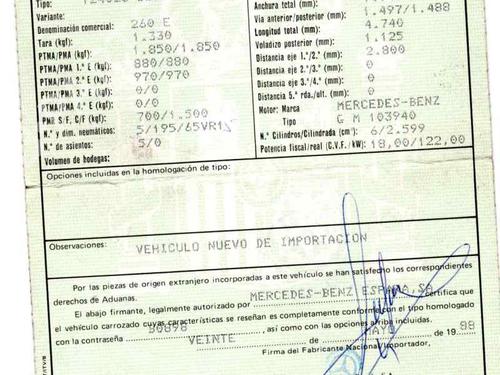 Tipo:
Variante:
Denominación comercial: 260 E
Tara (kgf): 1.330
PTMA/PMA (kgf): 1.850/1.850
PTMA/PMA 1.º E (kgf): 880/880
PTMA/PMA 2.º E (kgf): 970/970
PTMA/PMA 3.º E (kgf): 0/0
PTMA/PMA 4.º E (kgf): 0/0
PMR S/F, C/F (kgf): 700/1.500
N.º y dim. neumáticos: 5/195/65VR15
N.º de asientos: 5/0
Volumen de bodegas:
Anchura total (mm):
Vía anterior/posterior (mm): 1.497/1.488
Longitud total (mm): 4.740
Voladizo posterior (mm): 1.125
Distancia eje 1.º/2.º (mm): 2.800
Distancia eje 2.º/3.º (mm): 0
Distancia eje 3.º/4.º (mm): 0
Distancia 5.ª rda./ult. (mm): 0
Motor: Marca MERCEDES-BENZ
Tipo G M 103940
N.º Cilindros/Cilindrada (cm³): 6/2.599
Potencia fiscal/real (C.V.F. / kW): 18,00/122,00
Opciones incluidas en la homologación de tipo:
Observaciones: VEHICULO NUEVO DE IMPORTACION
Por las piezas de origen extranjero incorporadas a este vehículo se han satisfecho los correspondientes
derechos de Aduanas.
El abajo firmante, legalmente autorizado por MERCEDES-BENZ ESPAÑA,SA certifica que
el vehículo carrozado cuyas características se reseñan es completamente conforme con el tipo homologado
con la contraseña, así como con las opciones arriba incluidas.
VEINTE de MAYO de 1988
Firma del Fabricante Nacional/Importador,